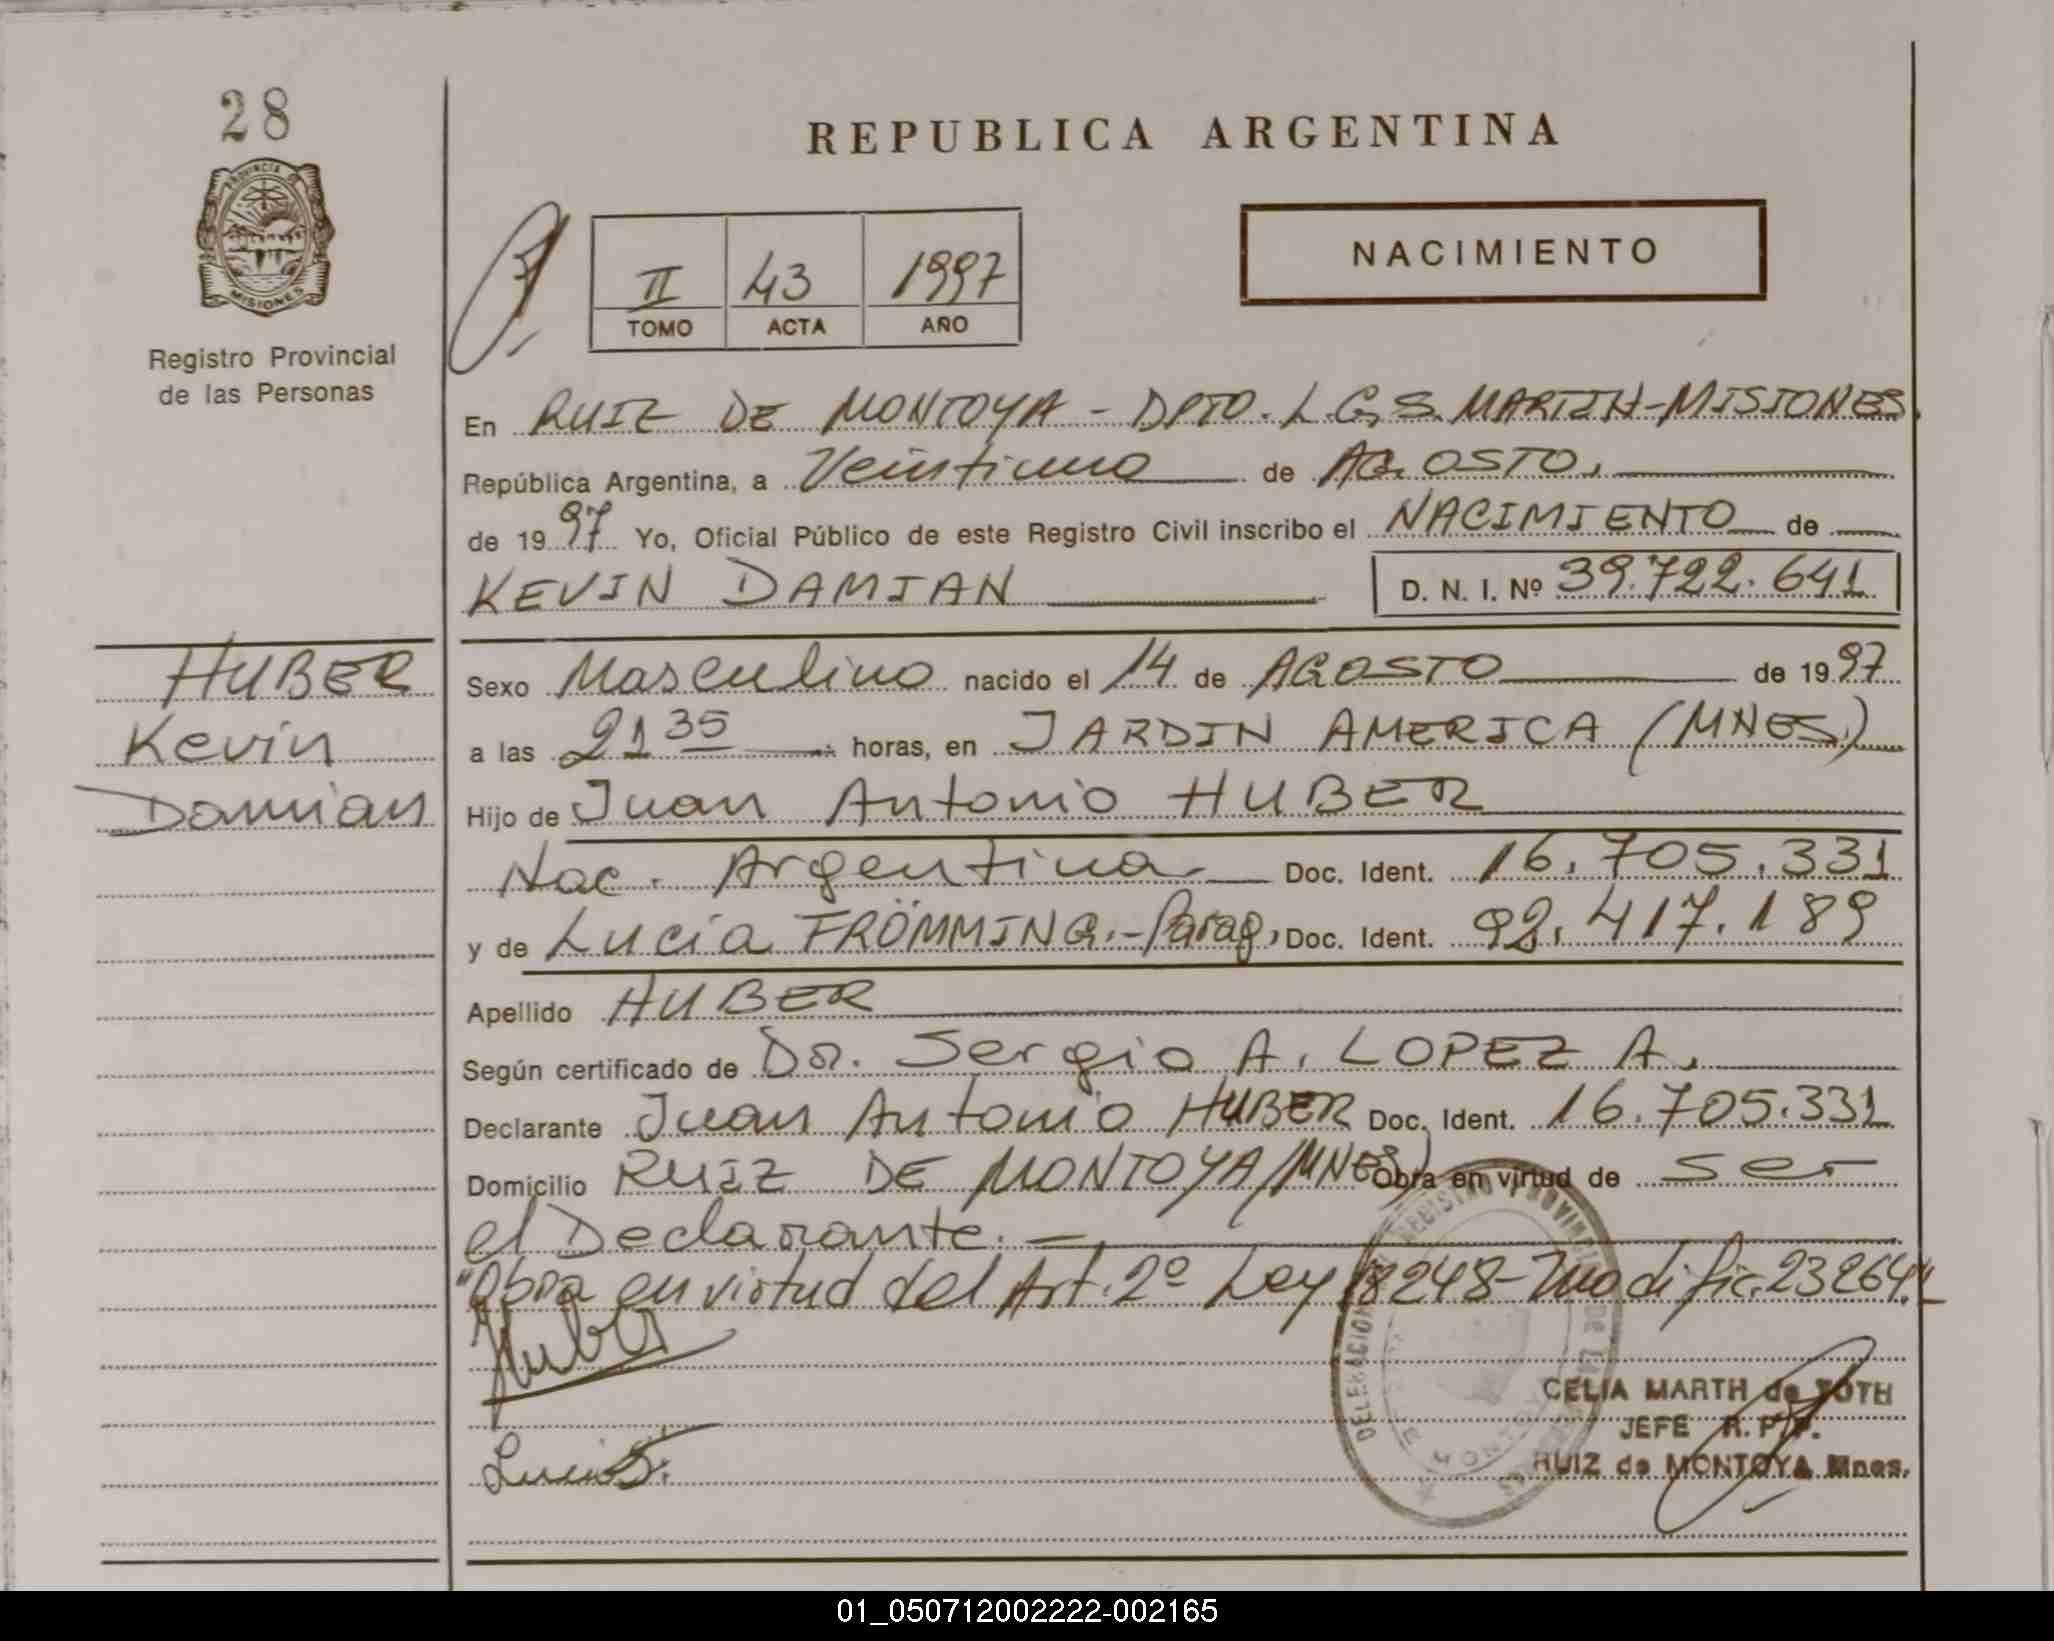 28
REPUBLICA ARGENTINA
PROVINCIA DE
MISIONES
Registro Provincial
de las Personas
II 43 1997
TOMO ACTA AÑO
NACIMIENTO
En RUIZ DE MONTOYA - DPTO. L.G.S. MARTIN-MISIONES.
República Argentina, a Veintiuno de AGOSTO.
de 1997 Yo, Oficial Público de este Registro Civil inscribo el NACIMIENTO de
KEVIN DAMIAN D. N. I. Nº 39.722.641
HUBER
Kevin
Damian
Sexo Masculino nacido el 14 de AGOSTO de 1997
a las 21 35 horas, en JARDIN AMERICA (MNES.)
Hijo de Juan Antonio HUBER
Nac. Argentina Doc. Ident. 16.705.331
y de Lucía FRÖMMING.-Parag, Doc. Ident. 92.417.189
Apellido HUBER
Según certificado de Dr. Sergio A. LOPEZ A.
Declarante Juan Antonio HUBER Doc. Ident. 16.705.331
Domicilio RUIZ DE MONTOYA (MNES) Obra en virtud de ser
el Declarante.
"Obra en virtud del Art. 2º Ley 18248-Modific. 23264."
Huber
CELIA MARTH de TOTH
JEFE R. P. P.
RUIZ de MONTOYA Mnes.
01_050712002222-002165